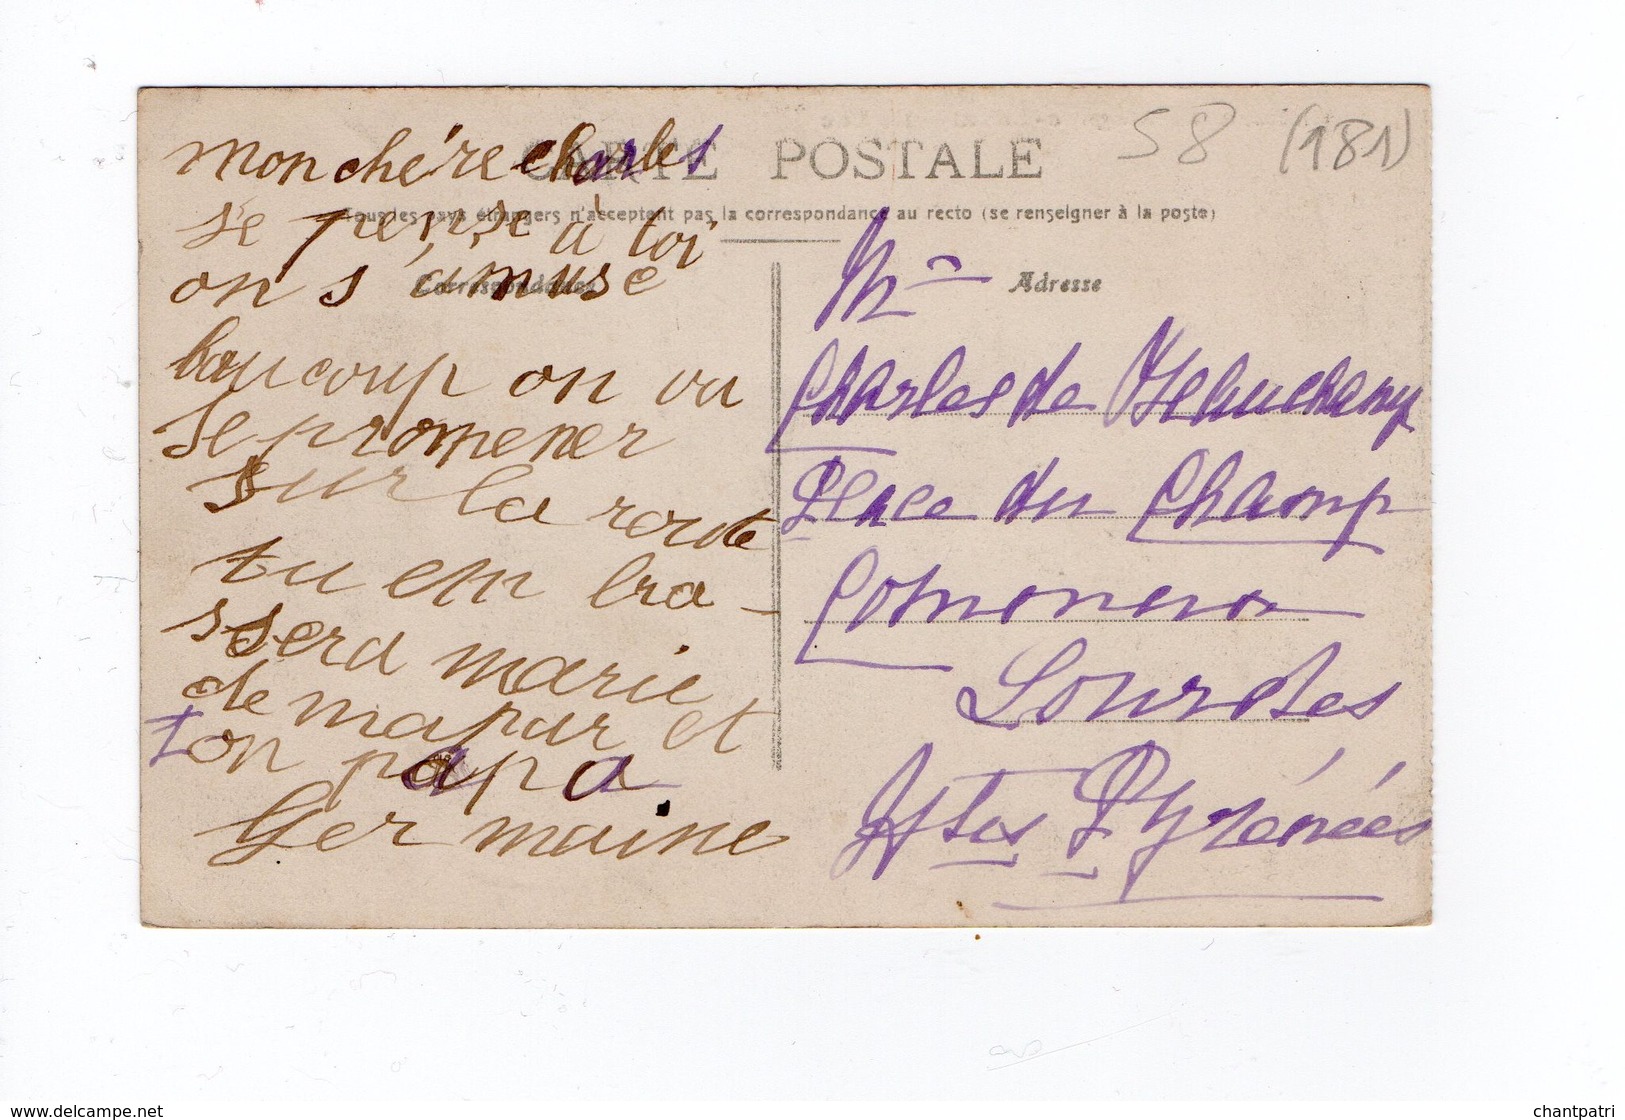 58 (181)
CARTE POSTALE
Tous les pays étrangers n'acceptent pas la correspondance au recto (se renseigner à la poste)
Correspondance
Adresse
mon chére charles
se pense à toi
on s'amuse
baucoup on va
se promener
sur la route
tu em bra-
ssera marie
de ma par et
ton papa
Germaine
Mr
Charles de
Place du Champ
Lourdes
Htes Pyrénées
delcampe.com
chantpatri